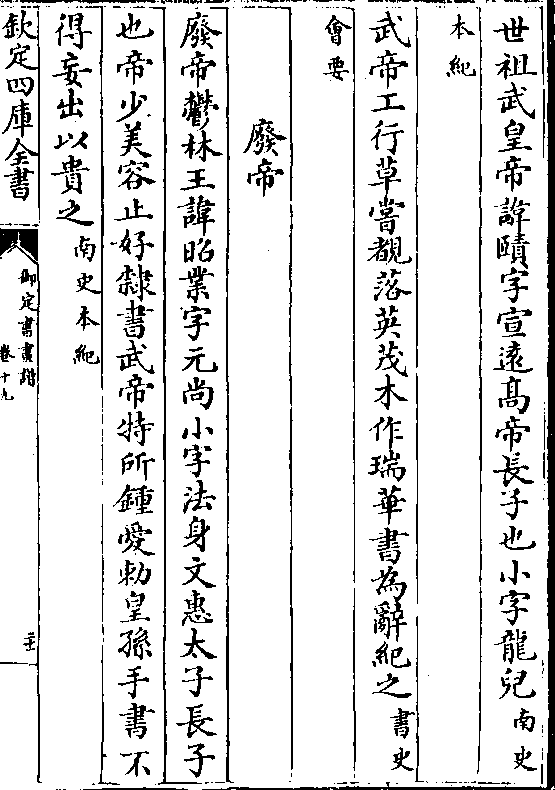 世祖武皇帝諱賾字宣遠髙帝長子也小字龍兒南史
本紀
武帝工行草嘗覩落英茂木作瑞華書為辭紀之書史
會要
廢帝
廢帝鬱林王諱昭業字元尚小字法身文惠太子長子
也帝少美容止好隸書武帝特所鍾愛勅皇孫手書不
得妄出以貴之南史本紀
欽定四庫全書
御定書畫譜
卷十九